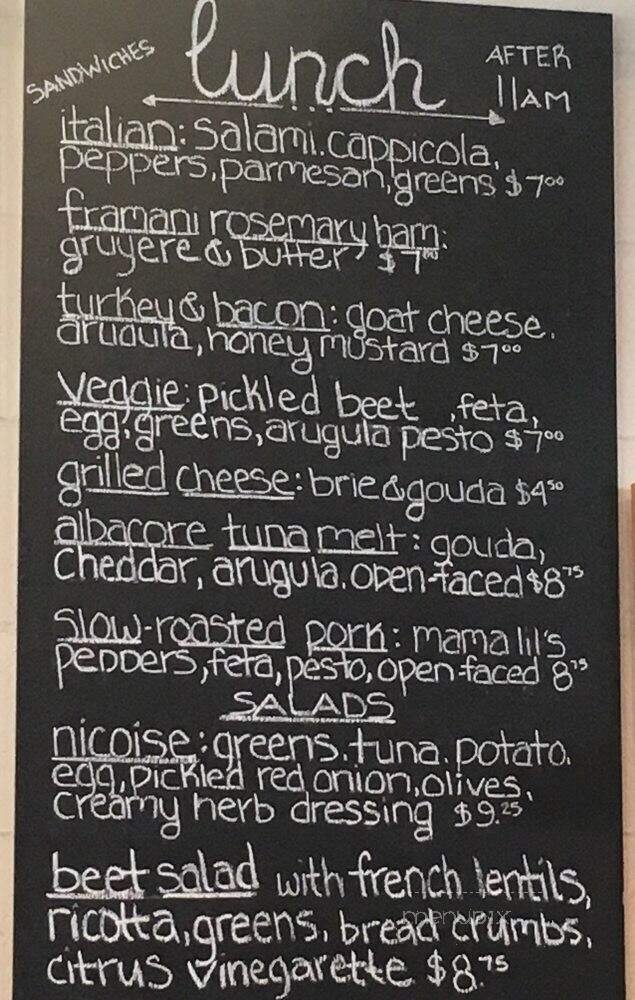 SANDWICHES
lunch
AFTER
11AM
italian: salami, cappicola,
peppers, parmesan, greens $7.00
framani rosemary ham:
gruyere & butter $7.00
turkey & bacon: goat cheese,
arugula, honey mustard $7.00
veggie: pickled beet, feta,
egg, greens, arugula pesto $7.00
grilled cheese: brie & gouda $4.50
albacore tuna melt: gouda,
cheddar, arugula. open-faced $8.75
slow-roasted pork: mama lil's
peppers, feta, pesto, open-faced 8.75
SALADS
nicoise: greens, tuna, potato,
egg, pickled red onion, olives,
creamy herb dressing $9.25
beet salad with french lentils,
ricotta, greens, bread crumbs,
menupix
citrus vinegarette $8.75